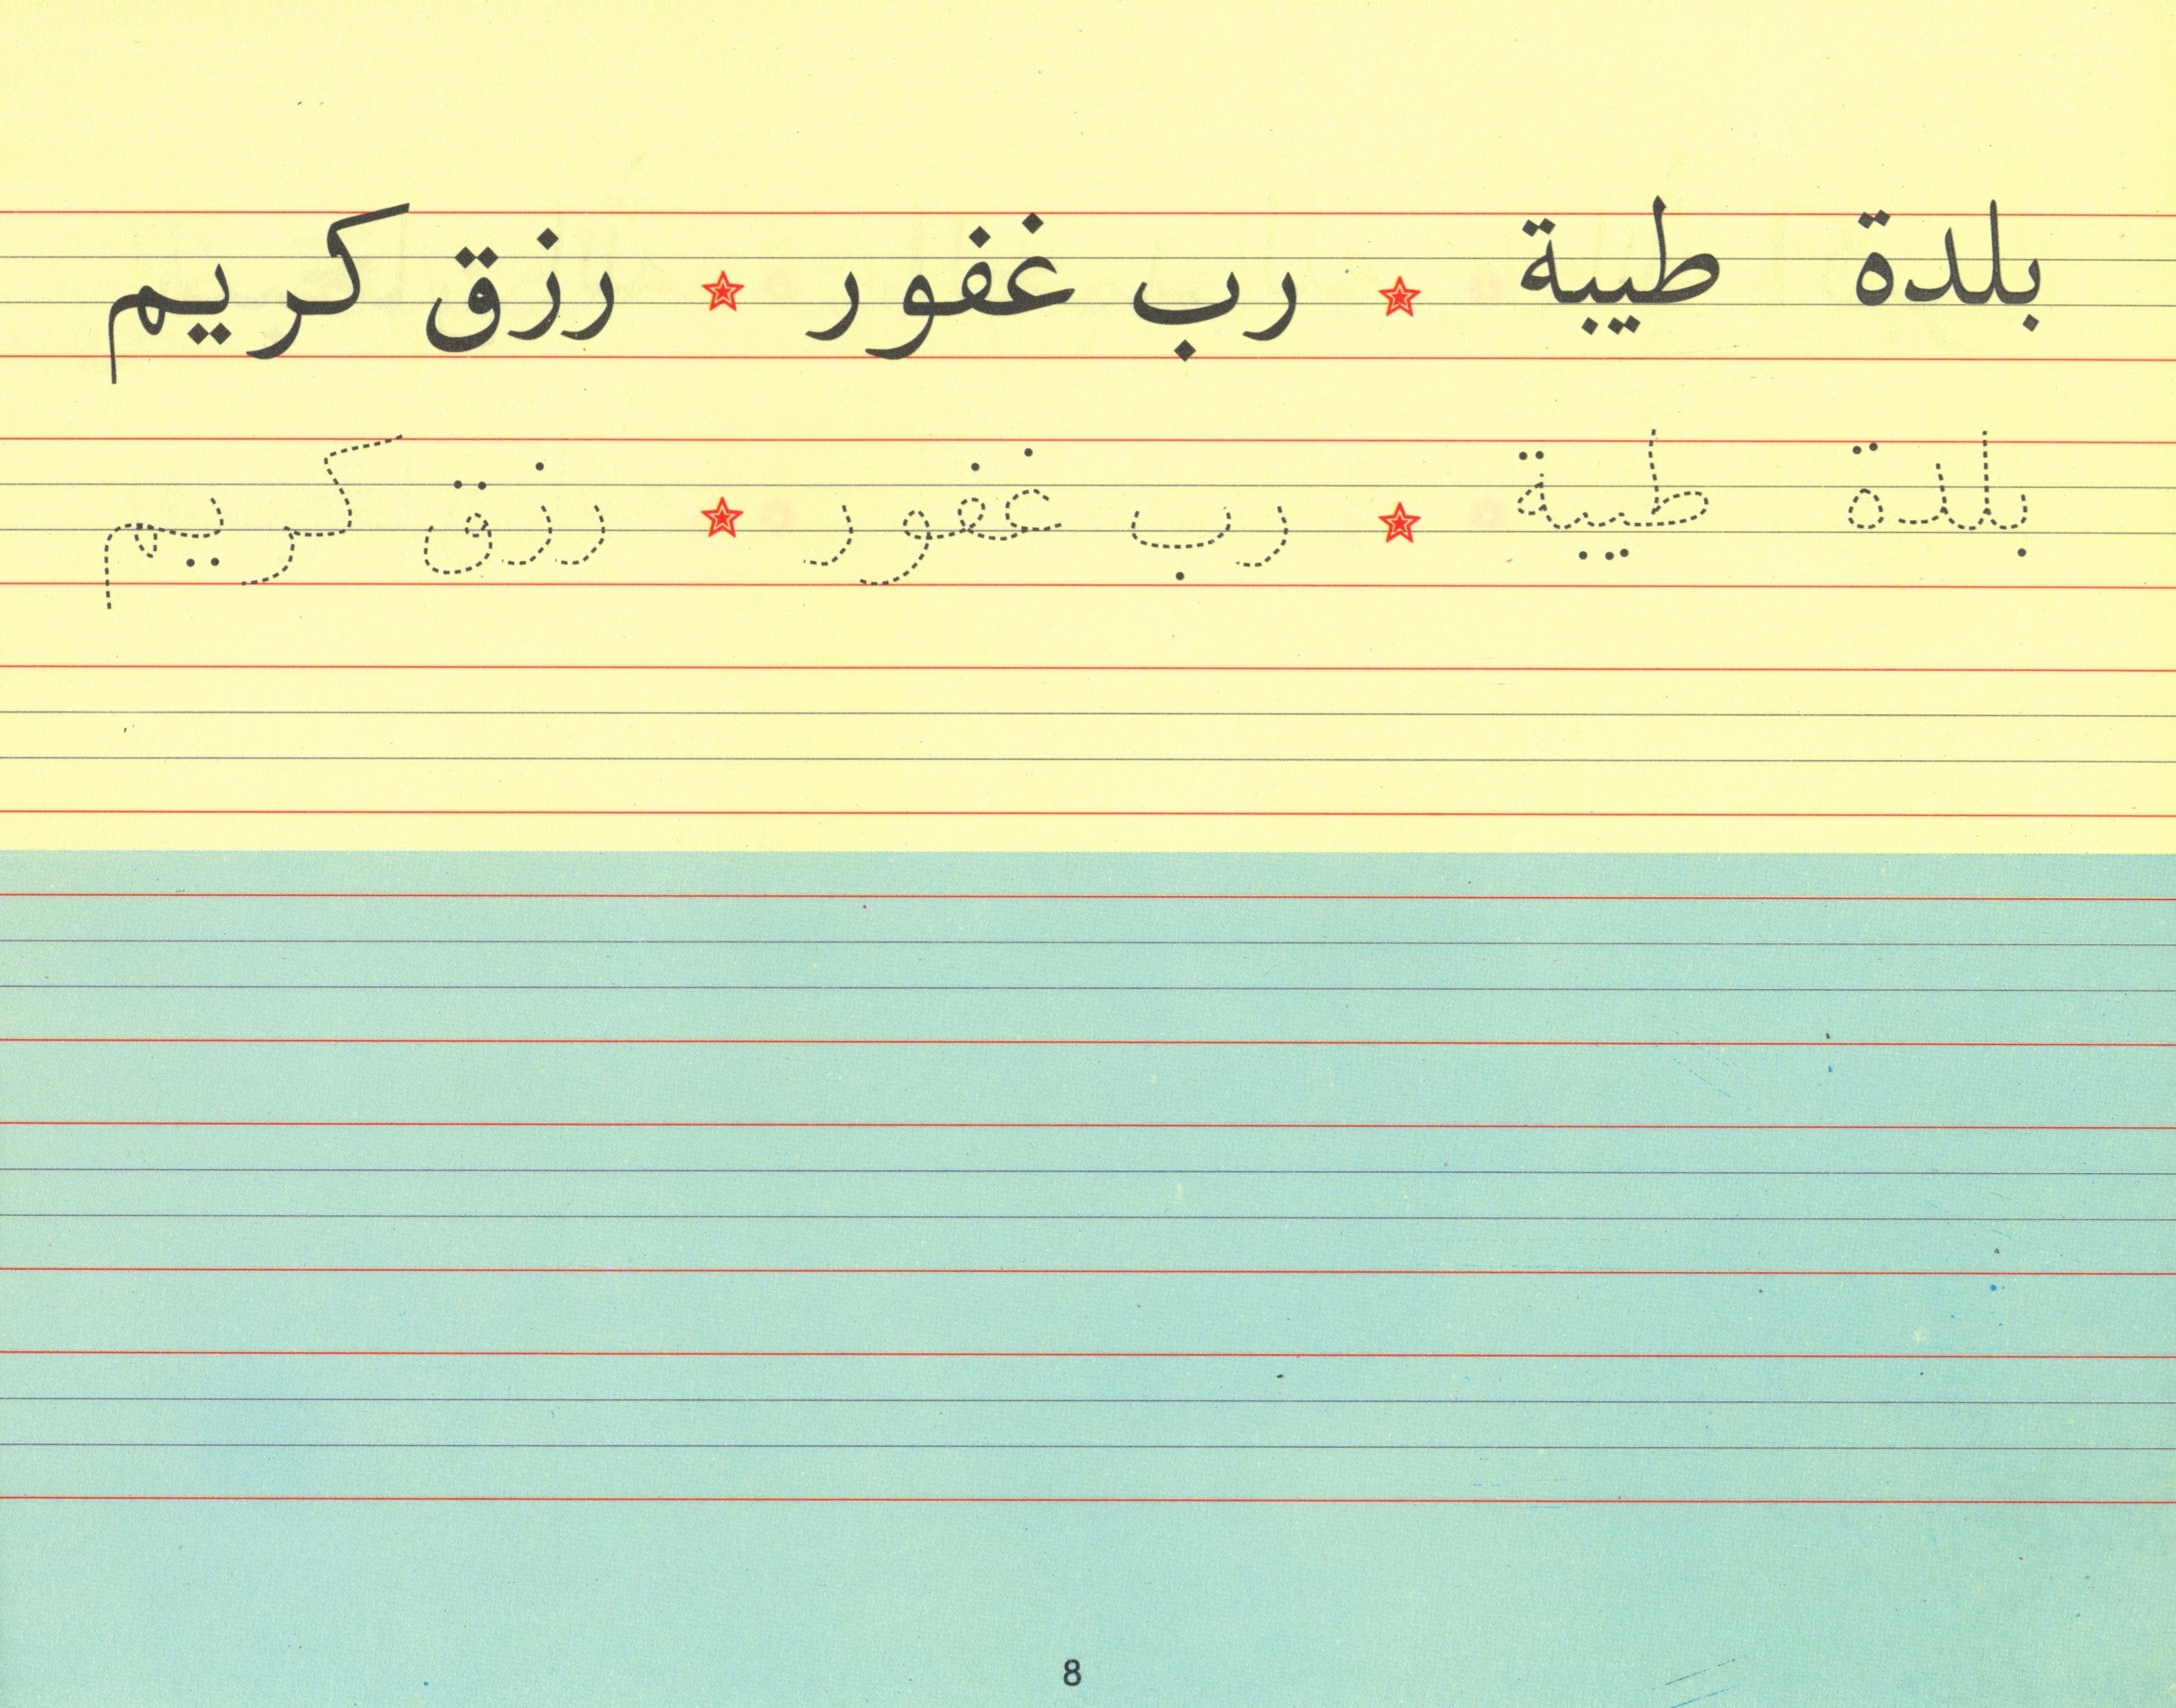 بلدة طيبة ★ رب غفور ★ رزق كريم
بلدة طيبة ★ رب غفور ★ رزق كريم
8